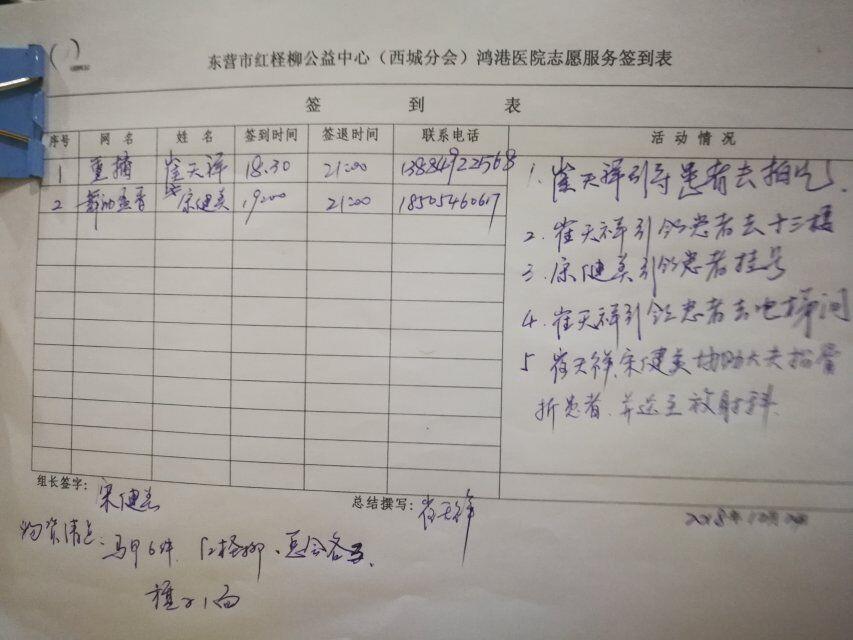 东营市红柽柳公益中心（西城分会）鸿港医院志愿服务签到表
签 到 表
序号 网名 姓名 签到时间 签退时间 联系电话 活动情况
1 重播 崔天祥 18:30 21:00 13884922568
2 宋健美 19:00 21:00 18505460617
1. 崔天祥引导患者去拍片.
2. 崔天祥引领患者去十三楼
3. 宋健美引领患者挂号
4. 崔天祥引领患者去电梯间
5 崔天祥、宋健美协助大夫抬骨
折患者、并送至放射科.
组长签字: 宋健美
总结撰写: 崔天祥
2018年10月
物资清点: 马甲6件 红柽柳、总会各
旗子1面